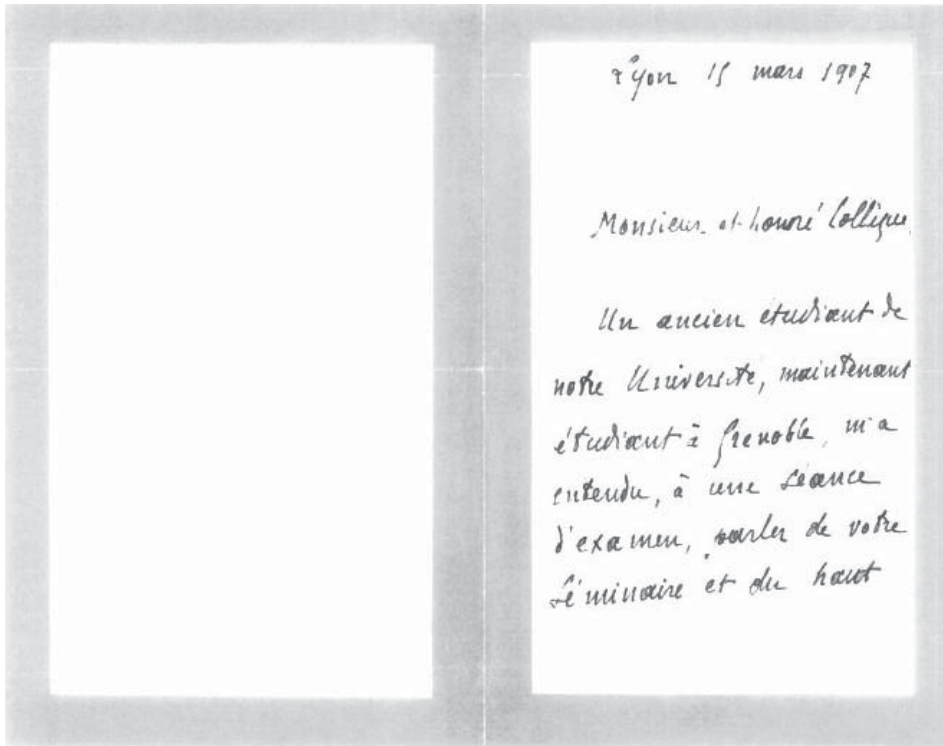 Lyon 15 mars 1907
Monsieur et honoré Collègue,
Un ancien étudiant de
notre Université, maintenant
étudiant à Grenoble, m'a
entendu, à une séance
d'examen, parler de votre
Séminaire et du haut